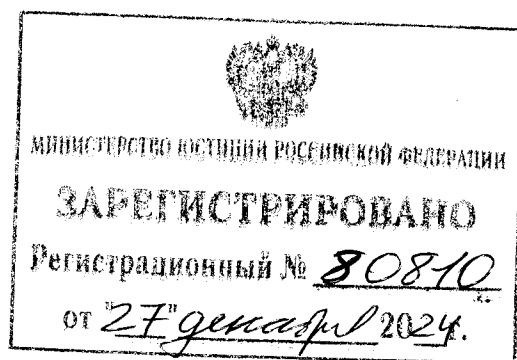 МИНИСТЕРСТВО ЮСТИЦИИ РОССИЙСКОЙ ФЕДЕРАЦИИ
ЗАРЕГИСТРИРОВАНО
Регистрационный № 80810
от "27" декабря 2024г.